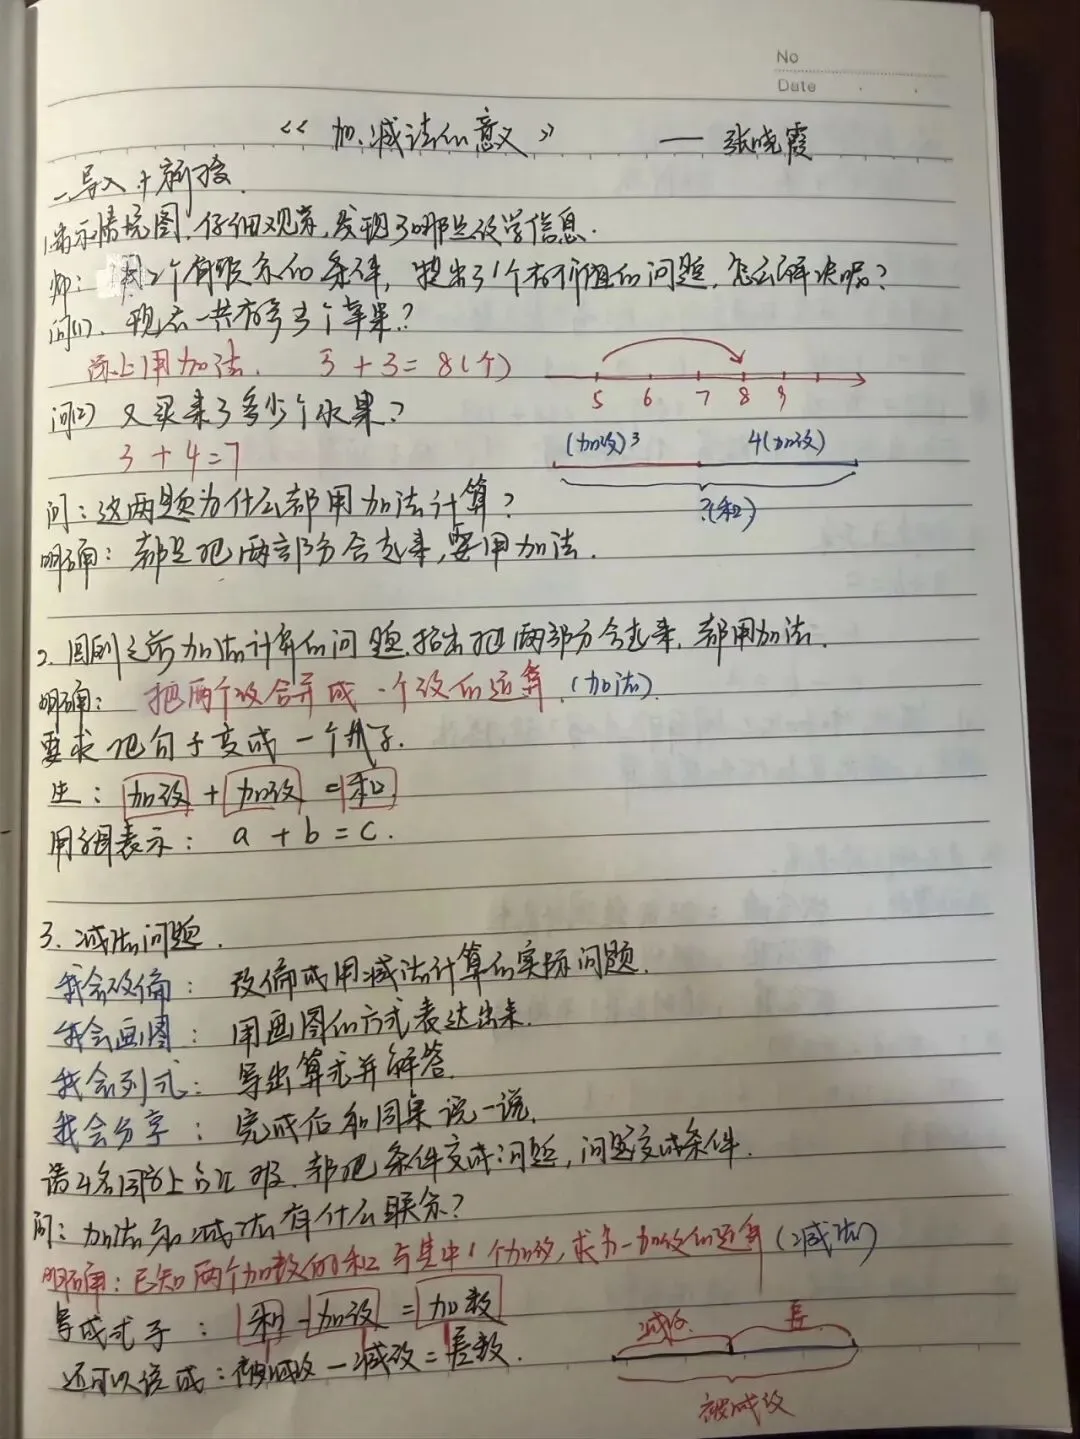 No
Date
《加、减法的意义》 — 张晓霞
一、导入+新授.
1.出示情境图,仔细观察,发现了哪些数学信息.
师: 用2个有联系的条件, 提出了1个有价值的问题,怎么解决呢?
问(1)、现在一共有多少个苹果?
线上用加法. 5+3=8(个)
5 6 7 8 9
问(2) 又买来了多少个水果?
3+4=7
(加数)3 4(加数)
?(和)
问:这两题为什么都用加法计算?
明确: 都是把两部分合起来,要用加法.
2. 回到之前加法计算的问题.指出把两部分合起来,都用加法.
明确: 把两个数合并成一个数的运算.(加法).
要求把句子变成一个式子.
生: 加数+加数=和
用字母表示: a+b=c.
3. 减法问题.
我会改编: 改编成用减法计算的实际问题.
我会画图: 用画图的方式表达出来.
我会列式: 写出算式并解答.
我会分享: 完成后和同桌说一说.
请4名同学上台汇报.都把条件变成问题,问题变成条件.
问:加法和减法有什么联系?
明确:已知两个加数的和与其中1个加数,求另一加数的运算(减法)
写成式子: 和-加数=加数
还可以说成:被减数-减数=差数.
减数 差
被减数